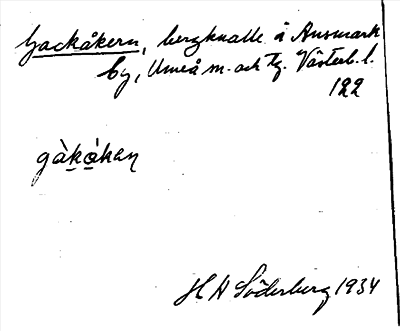 Gackåkern, bergknalle å Ansmark
by, Umeå sn. och tg. Västerb. l.
122
gàkåkan
H H Söderberg 1934